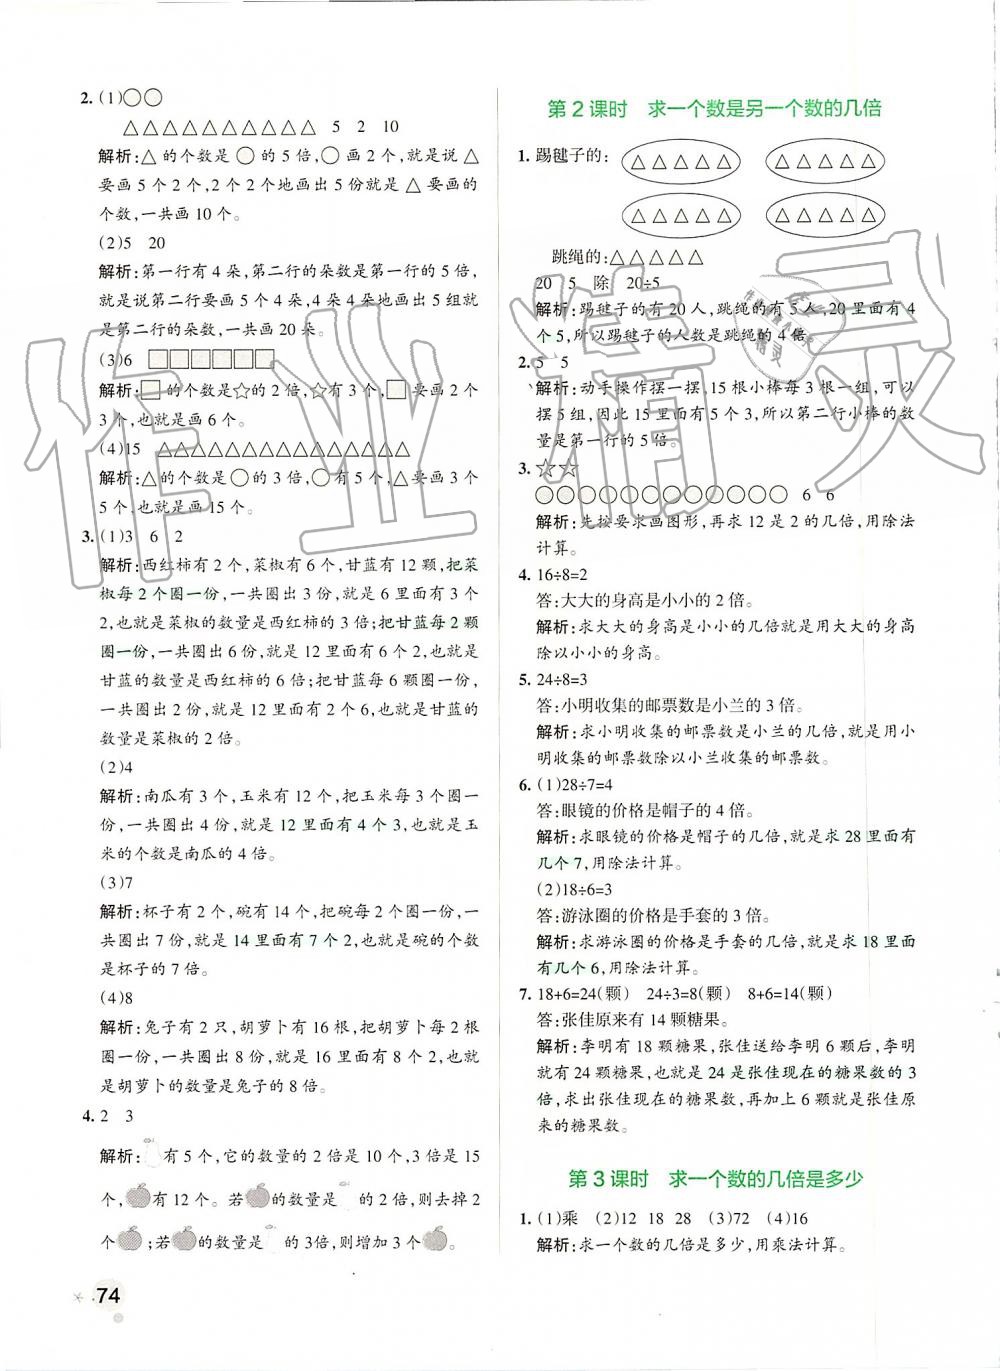 2.(1)○○
△△△△△△△△△△ 5 2 10
解析:△的个数是○的5倍,○画2个,就是说△
要画5个2个,2个2个地画出5份就是△要画的
个数,一共画10个。
(2)5 20
解析:第一行有4朵,第二行的朵数是第一行的5倍,
就是说第二行要画5个4朵,4朵4朵地画出5组就
是第二行的朵数,一共画20朵。
(3)6 □□□□□□
解析:□的个数是☆的2倍,☆有3个,□要画2个
3个,也就是画6个。
(4)15 △△△△△△△△△△△△△△△
解析:△的个数是○的3倍,○有5个,△要画3个
5个,也就是画15个。
3.(1)3 6 2
解析:西红柿有2个,菜椒有6个,甘蓝有12颗,把菜
椒每2个圈一份,一共圈出3份,就是6里面有3个
2,也就是菜椒的数量是西红柿的3倍;把甘蓝每2颗
圈一份,一共圈出6份,就是12里面有6个2,也就是
甘蓝的数量是西红柿的6倍;把甘蓝每6颗圈一份,
一共圈出2份,就是12里面有2个6,也就是甘蓝的
数量是菜椒的2倍。
(2)4
解析:南瓜有3个,玉米有12个,把玉米每3个圈一
份,一共圈出4份,就是12里面有4个3,也就是玉
米的个数是南瓜的4倍。
(3)7
解析:杯子有2个,碗有14个,把碗每2个圈一份,一
共圈出7份,就是14里面有7个2,也就是碗的个数
是杯子的7倍。
(4)8
解析:兔子有2只,胡萝卜有16根,把胡萝卜每2根
圈一份,一共圈出8份,就是16里面有8个2,也就
是胡萝卜的数量是兔子的8倍。
4.2 3
解析:有5个,它的数量的2倍是10个,3倍是15
个,有12个。若的数量是的2倍,则去掉2
个;若的数量是的3倍,则增加3个。
74
第2课时 求一个数是另一个数的几倍
1.踢毽子的:△△△△△ △△△△△
△△△△△ △△△△△
跳绳的:△△△△△
20 5 除 20÷5
解析:踢毽子的有20人,跳绳的有5人,20里面有4
个5,所以踢毽子的人数是跳绳的4倍。
2.5 5
解析:动手操作摆一摆,15根小棒每3根一组,可以
摆5组,因此15里面有5个3,所以第二行小棒的数
量是第一行的5倍。
3.☆☆
○○○○○○○○○○○○ 6 6
解析:先按要求画图形,再求12是2的几倍,用除法
计算。
4.16÷8=2
答:大大的身高是小小的2倍。
解析:求大大的身高是小小的几倍就是用大大的身高
除以小小的身高。
5.24÷8=3
答:小明收集的邮票数是小兰的3倍。
解析:求小明收集的邮票数是小兰的几倍,就是用小
明收集的邮票数除以小兰收集的邮票数。
6.(1)28÷7=4
答:眼镜的价格是帽子的4倍。
解析:求眼镜的价格是帽子的几倍,就是求28里面有
几个7,用除法计算。
(2)18÷6=3
答:游泳圈的价格是手套的3倍。
解析:求游泳圈的价格是手套的几倍,就是求18里面
有几个6,用除法计算。
7.18+6=24(颗) 24÷3=8(颗) 8+6=14(颗)
答:张佳原来有14颗糖果。
解析:李明有18颗糖果,张佳送给李明6颗后,李明
就有24颗糖果,也就是24是张佳现在的糖果数的3
倍,求出张佳现在的糖果数,再加上6颗就是张佳原
来的糖果数。
第3课时 求一个数的几倍是多少
1.(1)乘 (2)12 18 28 (3)72 (4)16
解析:求一个数的几倍是多少,用乘法计算。
作业精灵